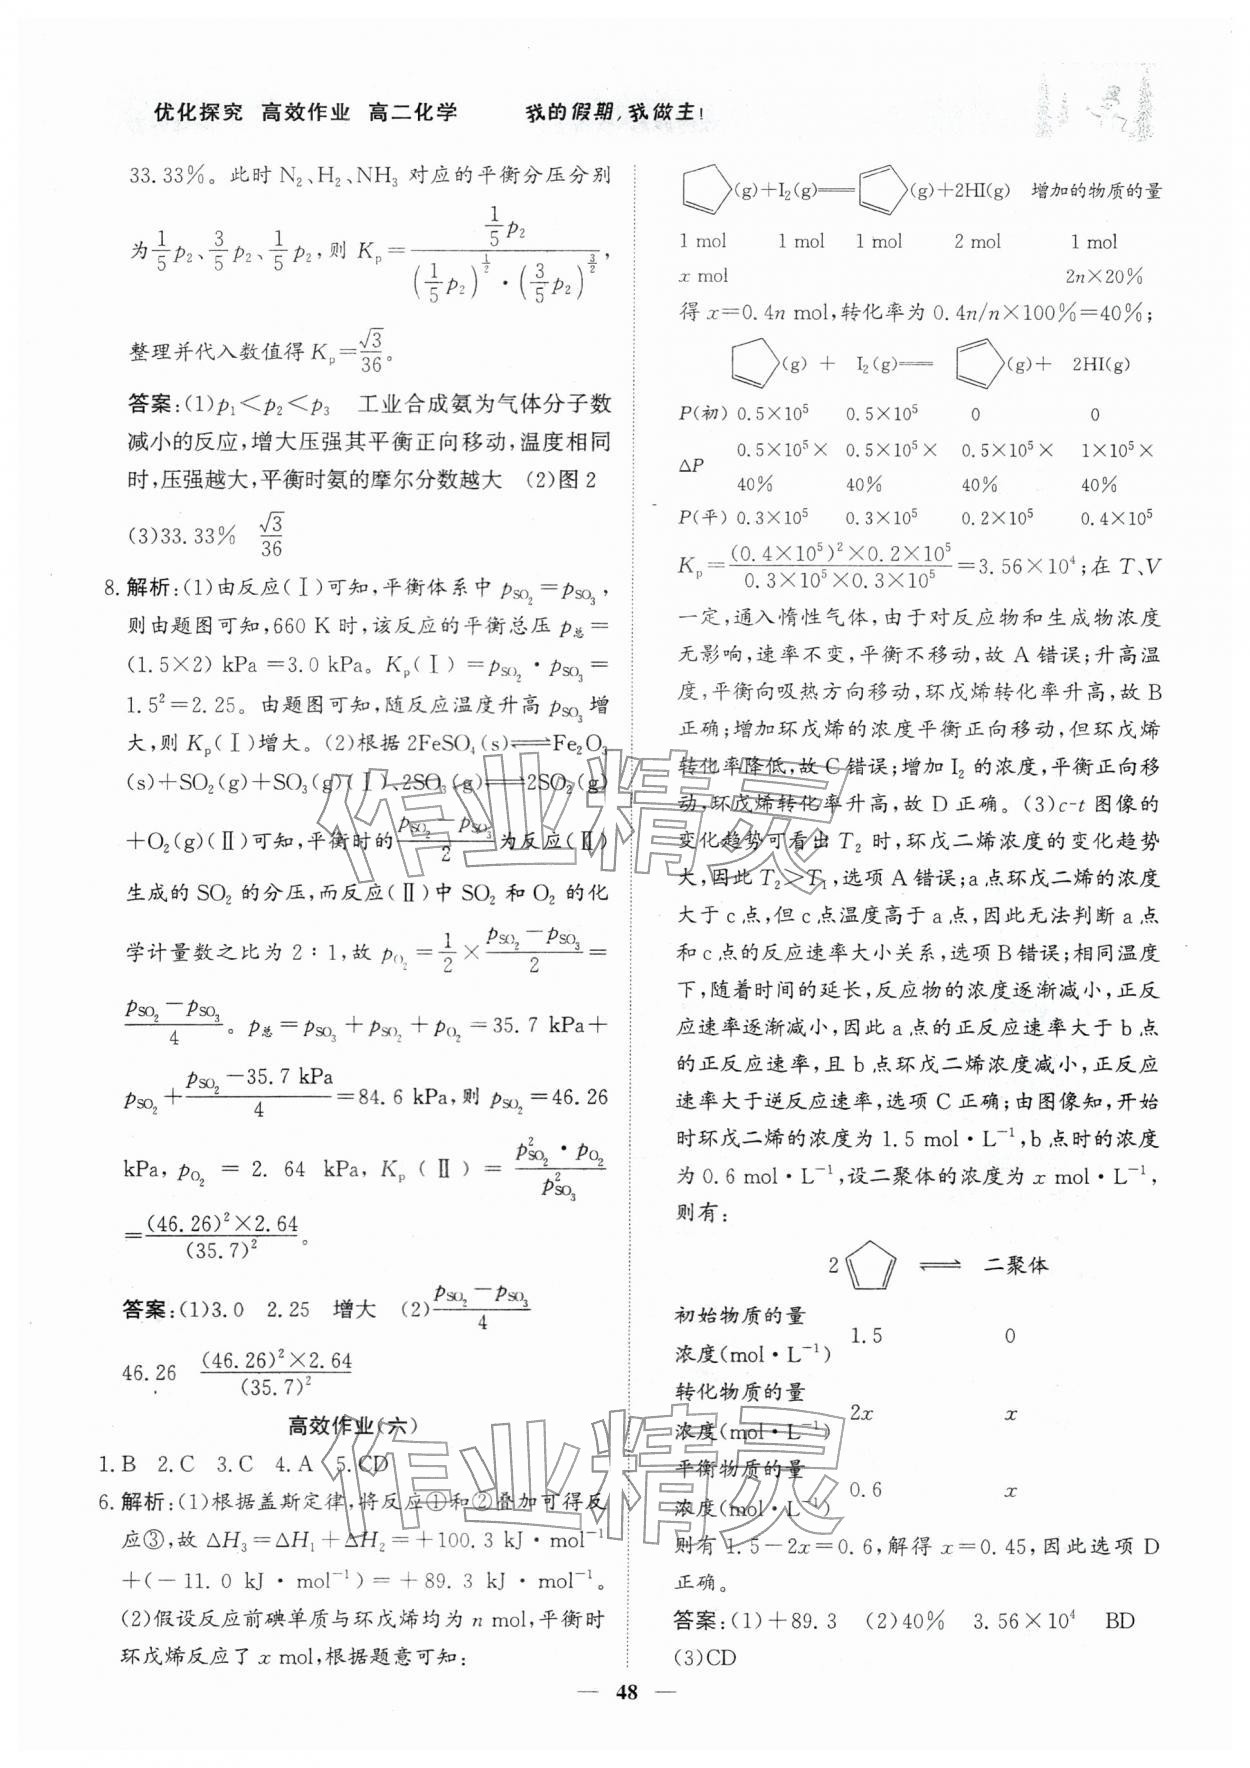 优化探究 高效作业 高二化学 我的假期,我做主!
33.33%。此时 N₂、H₂、NH₃ 对应的平衡分压分别
为 1/5 p₂、3/5 p₂、1/5 p₂,则 Kₚ = (1/5 p₂) / [(1/5 p₂)^(1/2)·(3/5 p₂)^(3/2)],
整理并代入数值得 Kₚ=√3/36。
答案:(1)p₁<p₂<p₃ 工业合成氨为气体分子数
减小的反应,增大压强其平衡正向移动,温度相同
时,压强越大,平衡时氨的摩尔分数越大 (2)图2
(3)33.33% √3/36
8.解析:(1)由反应(Ⅰ)可知,平衡体系中 p_SO₂=p_SO₃,
则由题图可知,660 K时,该反应的平衡总压 p总=
(1.5×2) kPa=3.0 kPa。Kₚ(Ⅰ)=p_SO₂·p_SO₃=
1.5²=2.25。由题图可知,随反应温度升高 p_SO₃增
大,则 Kₚ(Ⅰ)增大。(2)根据 2FeSO₄(s)⇌Fe₂O₃
(s)+SO₂(g)+SO₃(g)(Ⅰ)、2SO₃(g)⇌2SO₂(g)
+O₂(g)(Ⅱ)可知,平衡时的(p_SO₂−p_SO₃)/2 为反应(Ⅱ)
生成的 SO₂ 的分压,而反应(Ⅱ)中 SO₂ 和 O₂ 的化
学计量数之比为 2∶1,故 p_O₂=1/2×(p_SO₂−p_SO₃)/2=
(p_SO₂−p_SO₃)/4。p总=p_SO₃+p_SO₂+p_O₂=35.7 kPa+
p_SO₂+(p_SO₂−35.7 kPa)/4=84.6 kPa,则 p_SO₂=46.26
kPa,p_O₂=2.64 kPa,Kₚ(Ⅱ)=(p²_SO₂·p_O₂)/p²_SO₃
=(46.26)²×2.64/(35.7)²。
答案:(1)3.0 2.25 增大 (2)(p_SO₂−p_SO₃)/4
46.26 (46.26)²×2.64/(35.7)²
高效作业(六)
1.B 2.C 3.C 4.A 5.CD
6.解析:(1)根据盖斯定律,将反应①和②叠加可得反
应③,故 ΔH₃=ΔH₁+ΔH₂=+100.3 kJ·mol⁻¹
+(−11.0 kJ·mol⁻¹)=+89.3 kJ·mol⁻¹。
(2)假设反应前碘单质与环戊烯均为 n mol,平衡时
环戊烯反应了 x mol,根据题意可知:
(g)+I₂(g)══(g)+2HI(g) 增加的物质的量
1 mol 1 mol 1 mol 2 mol 1 mol
x mol 2n×20%
得 x=0.4n mol,转化率为 0.4n/n×100%=40%;
(g) + I₂(g)══(g)+ 2HI(g)
P(初) 0.5×10⁵ 0.5×10⁵ 0 0
ΔP 0.5×10⁵×40% 0.5×10⁵×40% 0.5×10⁵×40% 1×10⁵×40%
P(平) 0.3×10⁵ 0.3×10⁵ 0.2×10⁵ 0.4×10⁵
Kₚ=(0.4×10⁵)²×0.2×10⁵/(0.3×10⁵×0.3×10⁵)=3.56×10⁴;在 T、V
一定,通入惰性气体,由于对反应物和生成物浓度
无影响,速率不变,平衡不移动,故 A 错误;升高温
度,平衡向吸热方向移动,环戊烯转化率升高,故 B
正确;增加环戊烯的浓度平衡正向移动,但环戊烯
转化率降低,故 C 错误;增加 I₂ 的浓度,平衡正向移
动,环戊烯转化率升高,故 D 正确。(3)c-t 图像的
变化趋势可看出 T₂ 时,环戊二烯浓度的变化趋势
大,因此 T₂>T₁,选项 A 错误;a 点环戊二烯的浓度
大于 c 点,但 c 点温度高于 a 点,因此无法判断 a 点
和 c 点的反应速率大小关系,选项 B 错误;相同温度
下,随着时间的延长,反应物的浓度逐渐减小,正反
应速率逐渐减小,因此 a 点的正反应速率大于 b 点
的正反应速率,且 b 点环戊二烯浓度减小,正反应
速率大于逆反应速率,选项 C 正确;由图像知,开始
时环戊二烯的浓度为 1.5 mol·L⁻¹,b 点时的浓度
为 0.6 mol·L⁻¹,设二聚体的浓度为 x mol·L⁻¹,
则有:
2 ⇌ 二聚体
初始物质的量
浓度(mol·L⁻¹) 1.5 0
转化物质的量
浓度(mol·L⁻¹) 2x x
平衡物质的量
浓度(mol·L⁻¹) 0.6 x
则有 1.5−2x=0.6,解得 x=0.45,因此选项 D
正确。
答案:(1)+89.3 (2)40% 3.56×10⁴ BD
(3)CD
— 48 —
作业精灵
作业精灵